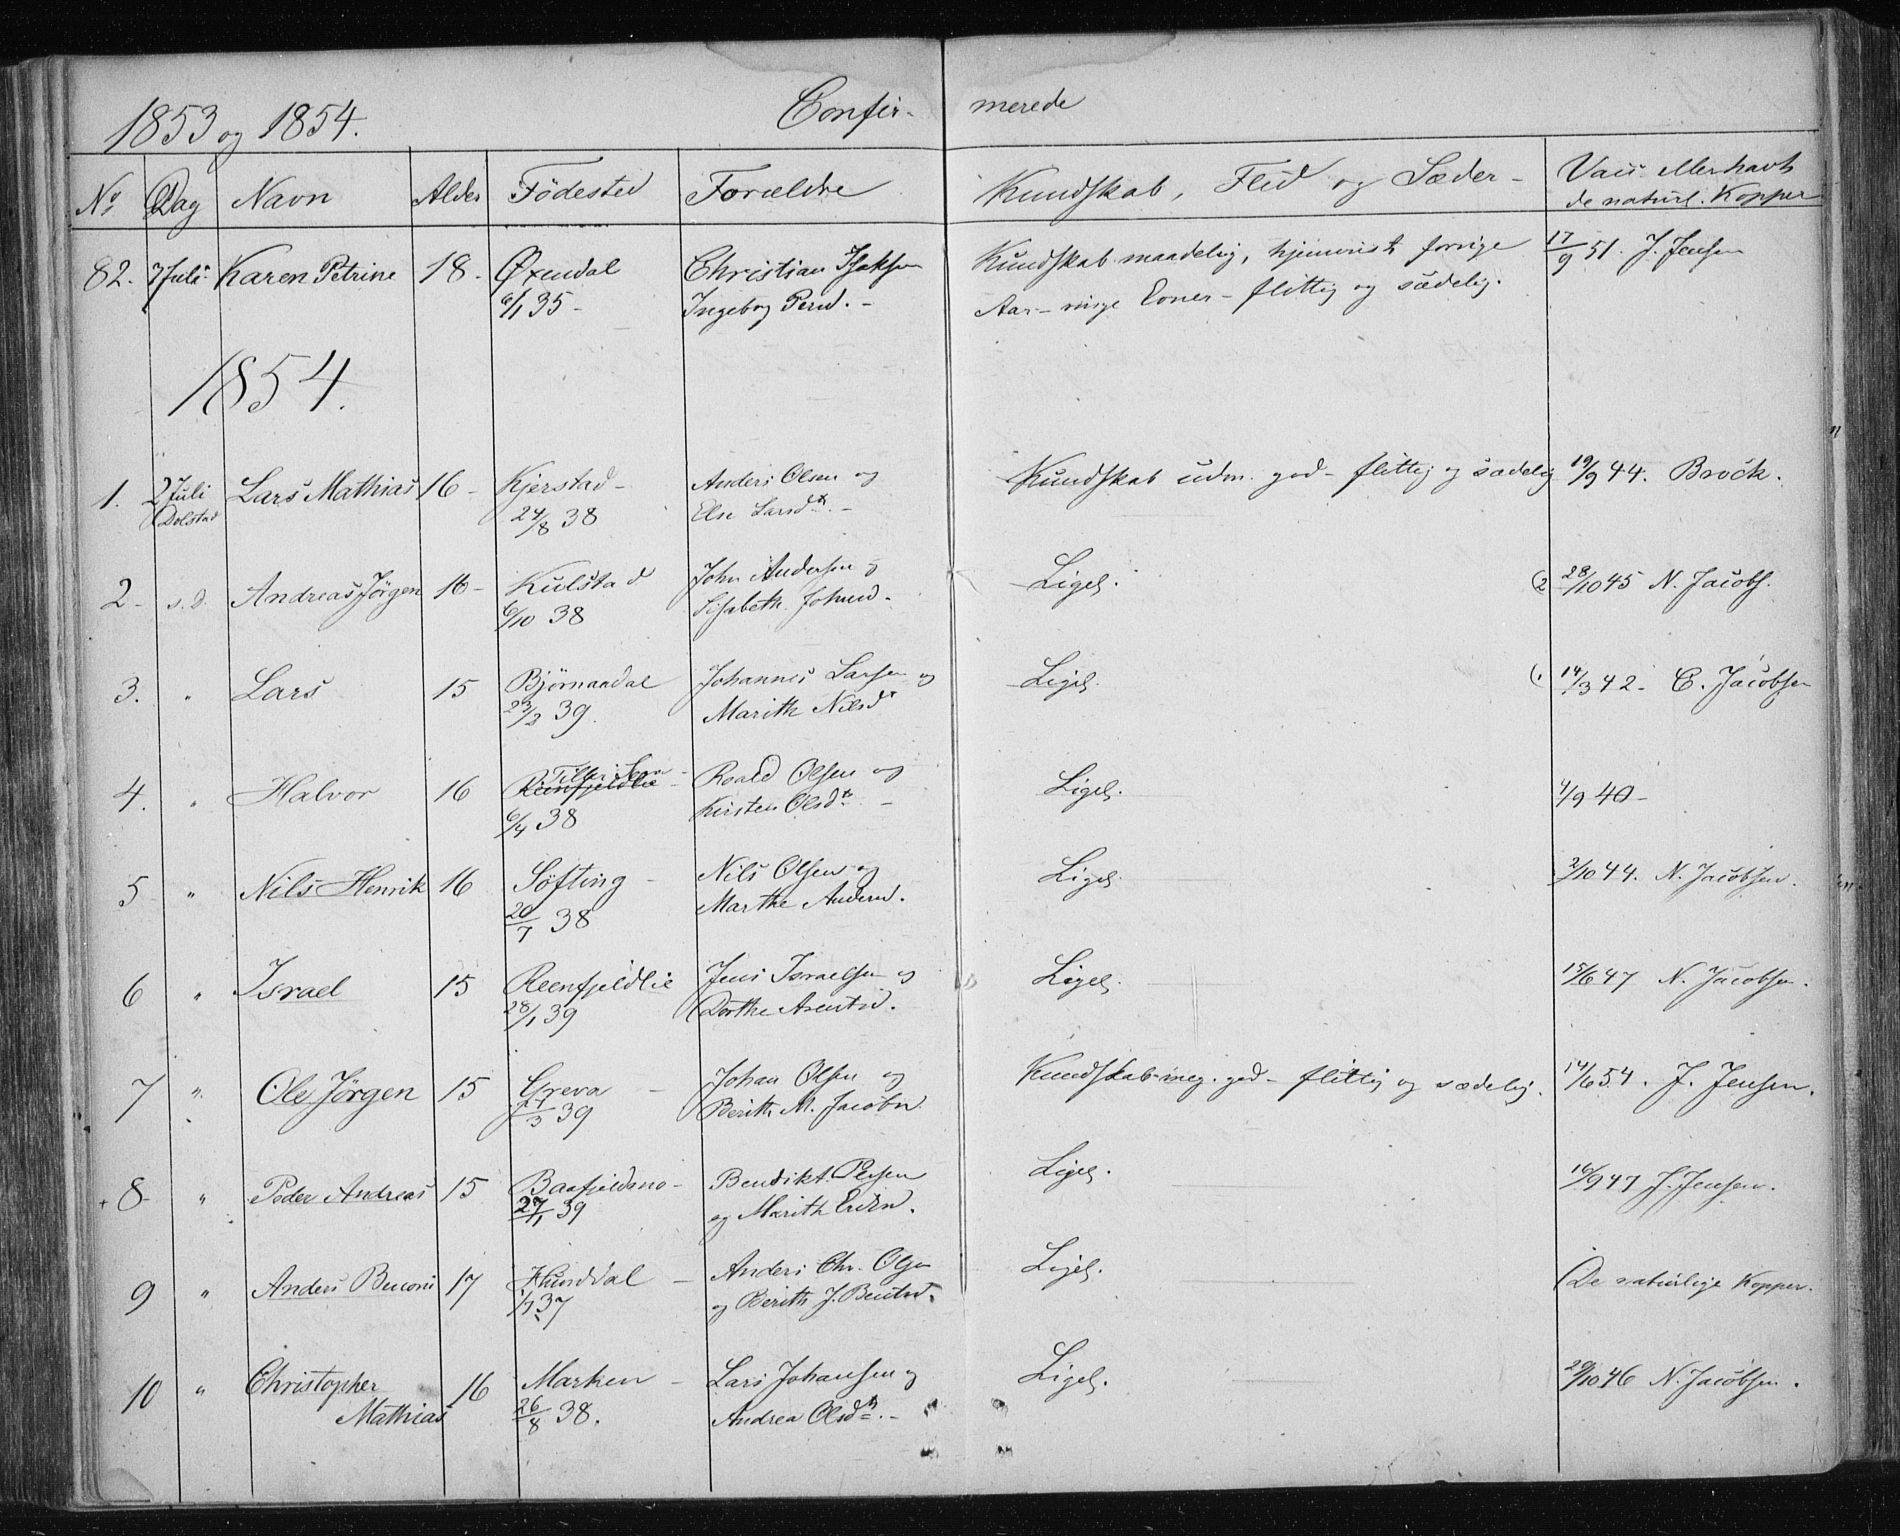 1853 og 1854. Confir- merede
No Dag Navn Alder Fødested Forældre Kundskab, Flid og Sæder - Vacc. eller havt
de naturl. Kopper
82. 7 Juli Karen Petrine 18 - Øxendal Christian Isaksen Kundskab maadelig, hjemvist forrige 17/9 51. J. Jensen
6/1 35 - Ingeborg Persd. - Aar - ringe Evner - flittig og sædelig.
1854.
1. 2 Juli Lars Mathias 16 - Kjerstad - Anders Olsen og Kundskab udm. god - flittig og sædelig 19/9 44. Brock.
Dolstad 24/8 38 Else Larsdtr. -
2 - s.d. Andreas Jørgen 16 - Kulstad John Andersen og Ligel. (2 28/10 45 N. Jacobs.
6/10 38 Lisabeth Johnsd.
3. " Lars 15 Bjørnaadal Johannes Larsen og Ligel. (1 14/3 42 - C. Jacobsen
39. Marith Nilsdr
4. " Halvor 16 Reenfjeldlie - Roald Olsen og Ligel. 4/9 40 -
6/4 38 Kirsten Olsdtr -
5 " Nils Henrik 16 Søfting - Nils Olsen og Ligel. 2/10 44. N. Jacobsen.
20/7 38 Marthe Andersd.
6 " Israel 15 Reenfjeldlie Jens Israelsen og Ligel. 15/6 47 N. Jacobsen.
28/1 39 Dorthe Arentsd.
7 " Ole Jørgen 15 Greva - Johan Olsen og Kundskab meg. god - flittig og sædelig. 14/6 54. J. Jensen.
39 Berith M. Jacobsd.
8 " Peder Andreas 15 Baafjeldmo - Bendikt Persen Ligel. 16/9 47 J. Jensen.
27/1 39 og Marith
9 " Anders Benoni 17 Hunddal - Anders Chr. Olsen Ligel. De naturlige Kopper.
37 og Berith J. Bentsd.
10 " Christopher 16 Marken - Lars Johansen og Ligel. 29/10 46 N. Jacobsen.
Mathias 26/8 38. Andrea Olsdtr. -